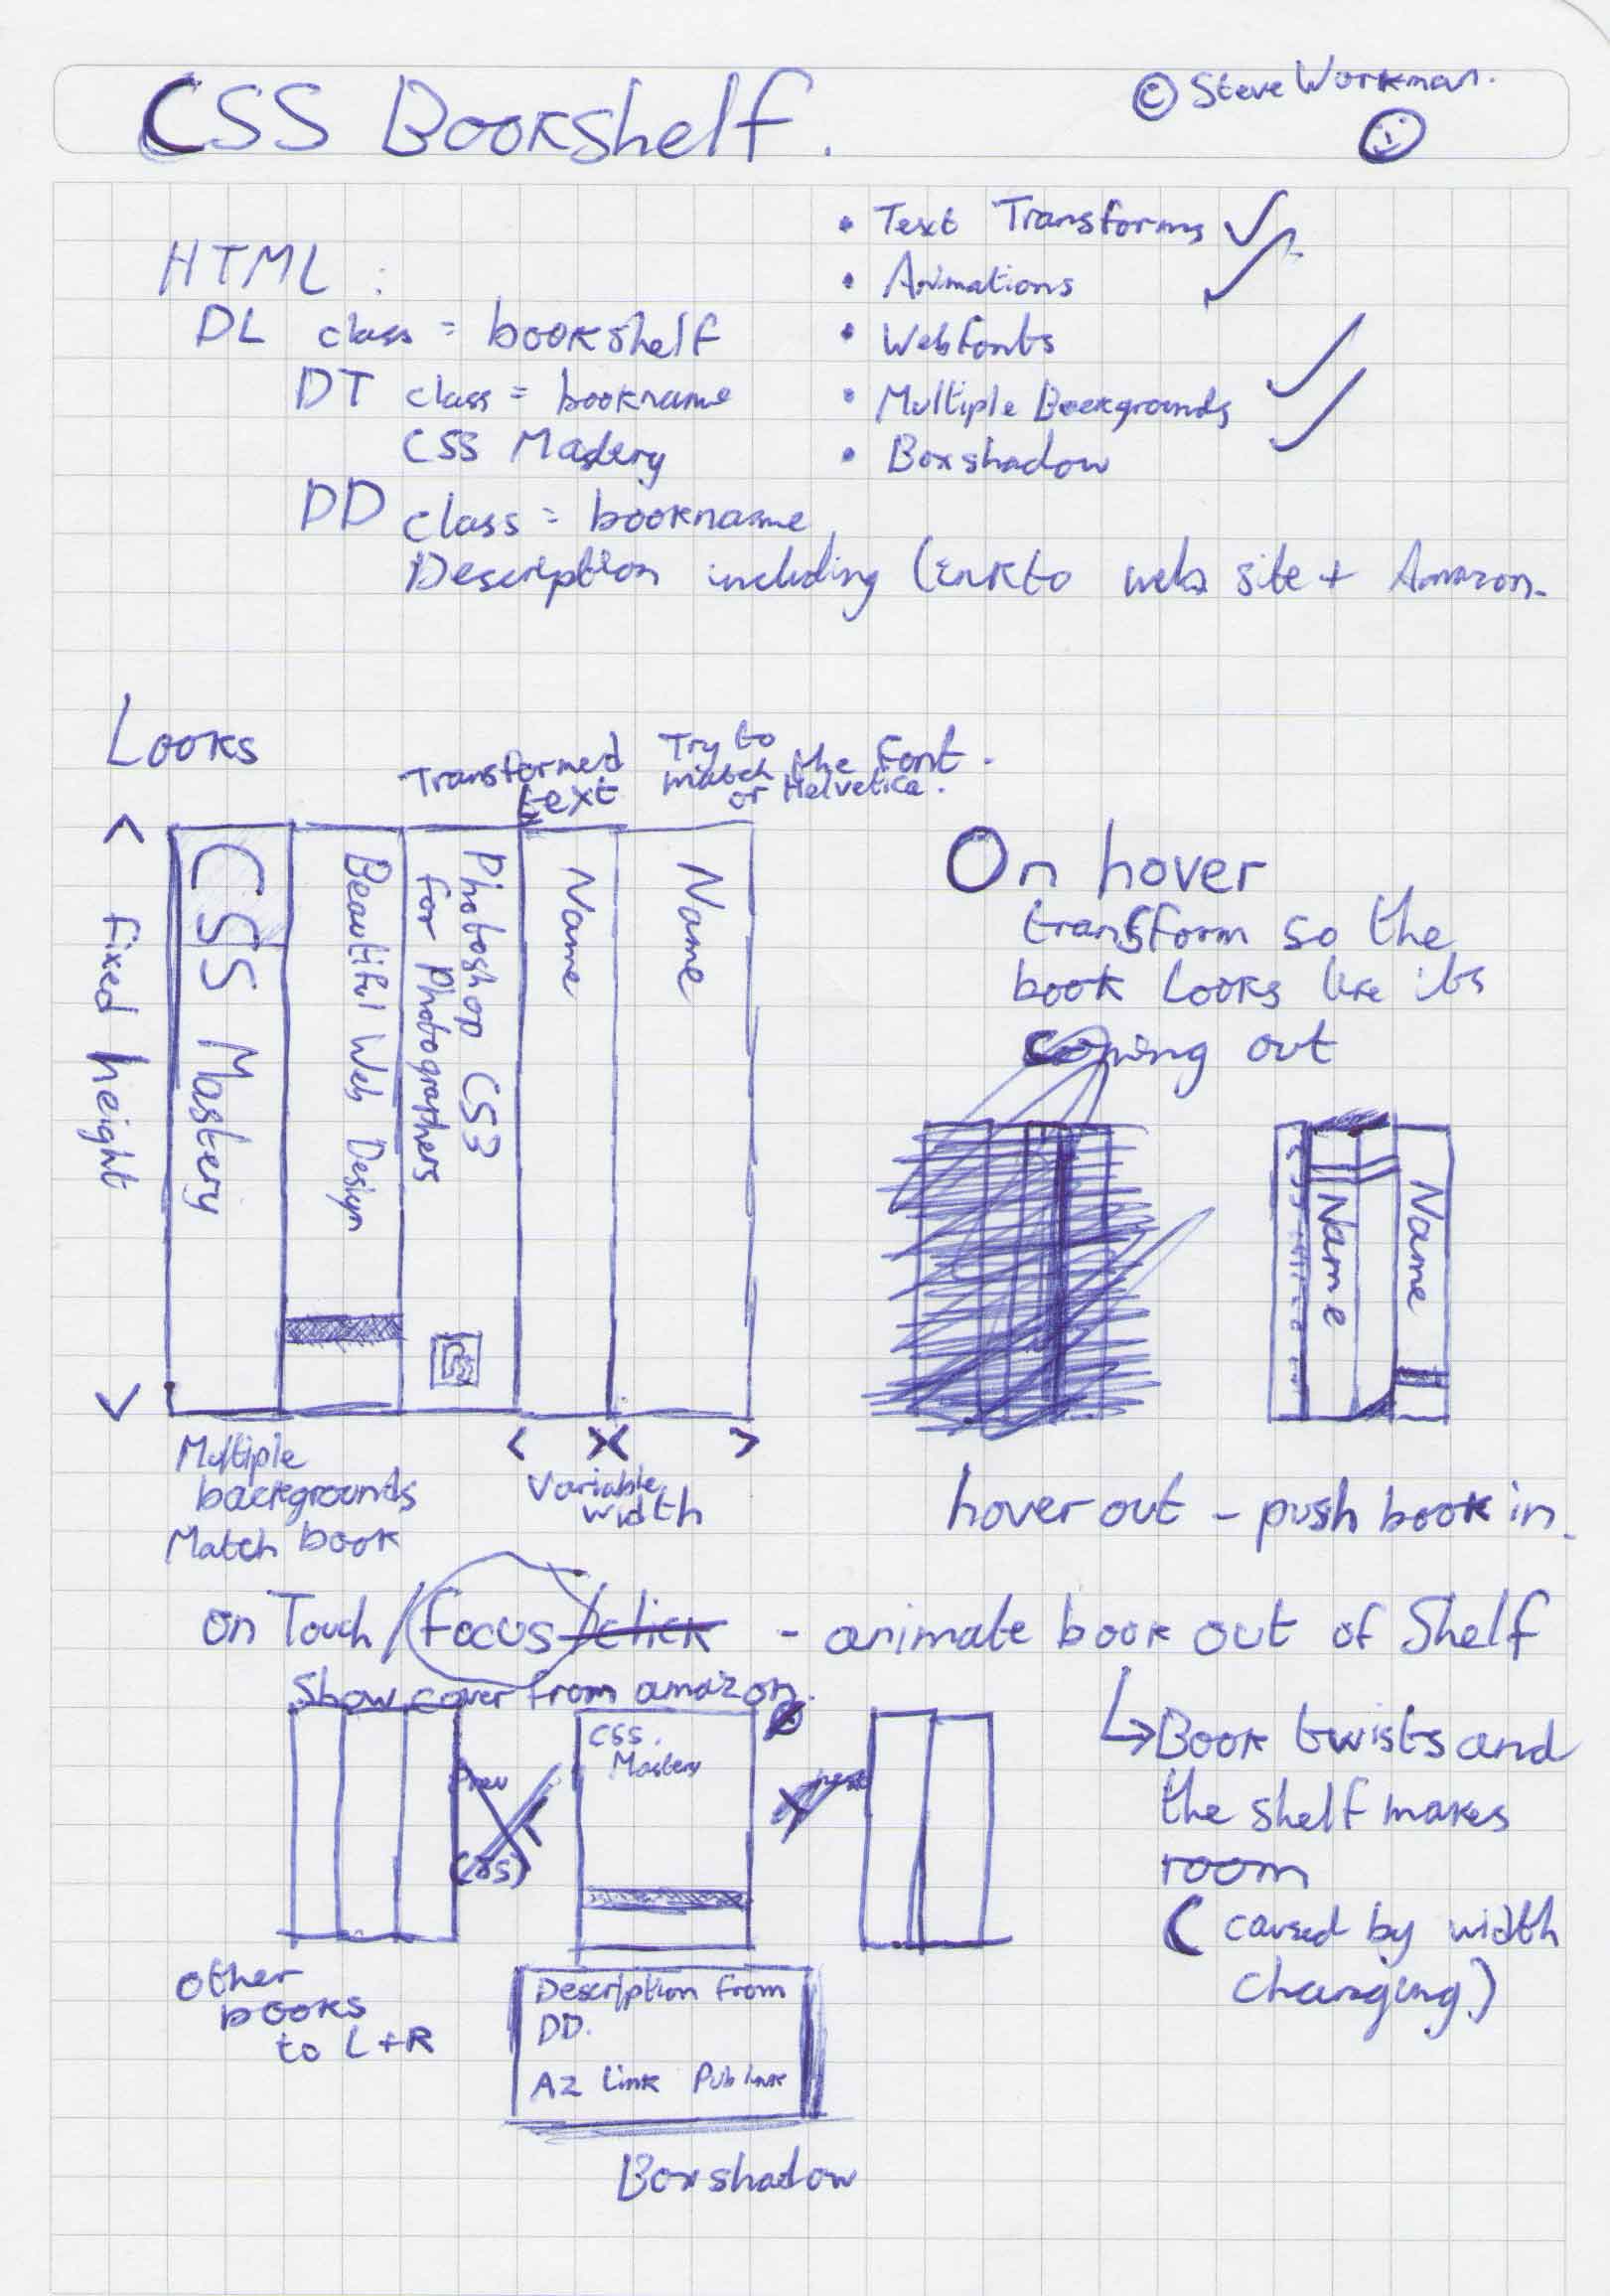 CSS Bookshelf.
© Steve Workman.
HTML :
DL class = bookshelf
DT class = bookname
CSS Mastery
DD class = bookname
Description including link to web site + Amazon.
• Text Transforms
• Animations
• Webfonts
• Multiple Backgrounds
• Boxshadow
Looks
Transformed
text
Try to
match the font.
or Helvetica.
fixed height
CSS Mastery
Beautiful Web Design
Photoshop CS3
for Photographers
Name
Name
Multiple
backgrounds
Match book
Variable
width
On hover
transform so the
book looks like its
coming out
Name
Name
hover out - push book in.
on Touch / Focus / click - animate book out of Shelf
Show cover from amazon.
Prev
CSS.
Mastery
next
↳ Book twists and
the shelf makes
room
( caused by width
changing.)
Other
books
to L+R
Description from
DD.
AZ link Pub link
Boxshadow